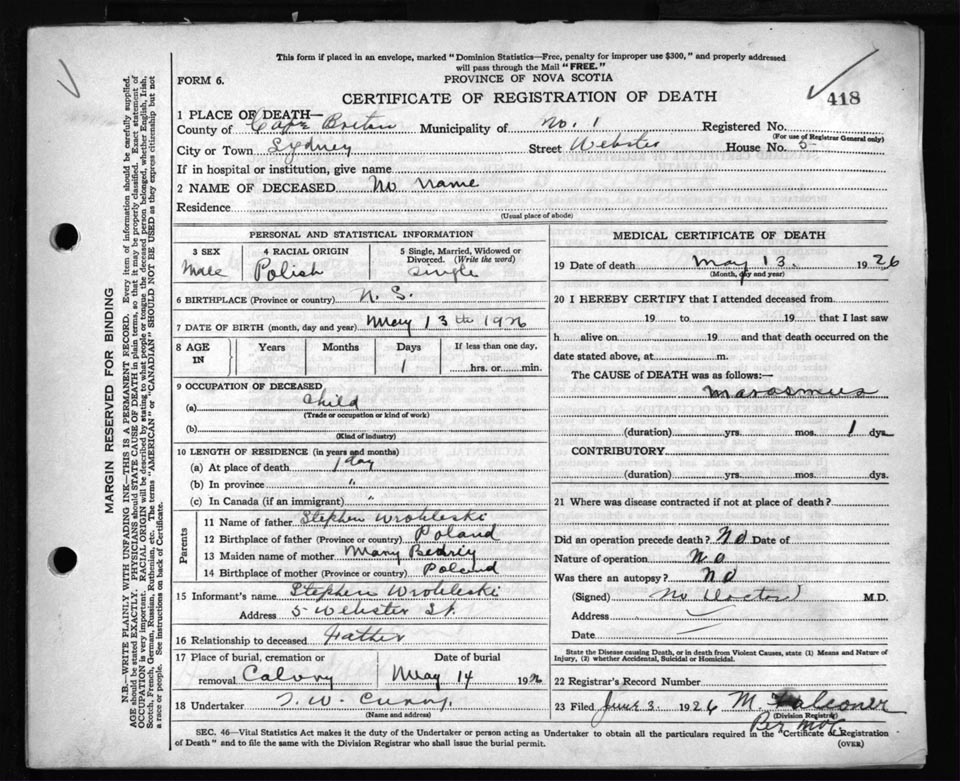 This form if placed in an envelope, marked "Dominion Statistics—Free, penalty for improper use $300," and properly addressed
will pass through the Mail "FREE."
FORM 6.
PROVINCE OF NOVA SCOTIA
CERTIFICATE OF REGISTRATION OF DEATH
418
1 PLACE OF DEATH—
County of Cape Breton Municipality of No. 1 Registered No.
(For use of Registrar General only)
City or Town Sydney Street Webster House No. 5
If in hospital or institution, give name
2 NAME OF DECEASED No name
Residence
(Usual place of abode)
PERSONAL AND STATISTICAL INFORMATION
3 SEX 4 RACIAL ORIGIN 5 Single, Married, Widowed or
Divorced. (Write the word)
Male Polish Single
6 BIRTHPLACE (Province or country) N. S.
7 DATE OF BIRTH (month, day and year) May 13th 1926
8 AGE IN Years Months Days If less than one day,
1 hrs. or min.
9 OCCUPATION OF DECEASED
(a) Child
(Trade or occupation or kind of work)
(b)
(Kind of industry)
10 LENGTH OF RESIDENCE (in years and months)
(a) At place of death 1 day
(b) In province "
(c) In Canada (if an immigrant) "
Parents
11 Name of father Stephen Wrobleski
12 Birthplace of father (Province or country) Poland
13 Maiden name of mother Mary
14 Birthplace of mother (Province or country) Poland
15 Informant's name Stephen Wrobleski
Address 5 Webster St.
16 Relationship to deceased Father
17 Place of burial, cremation or Date of burial
removal Calvry May 14 192
18 Undertaker T. W. Curry.
(Name and address)
MEDICAL CERTIFICATE OF DEATH
19 Date of death May 13. 1926
(Month, day and year)
20 I HEREBY CERTIFY that I attended deceased from
19 to 19 that I last saw
h alive on 19 and that death occurred on the
date stated above, at m.
The CAUSE of DEATH was as follows:—
Marasmus
(duration) yrs. mos. 1 dys.
CONTRIBUTORY
(duration) yrs. mos. dys.
21 Where was disease contracted if not at place of death?
Did an operation precede death? No Date of
Nature of operation No
Was there an autopsy? No
(Signed) No Doctor M.D.
Address
Date
State the Disease causing Death, or in death from Violent Causes, state (1) Means and Nature of
Injury, (2) whether Accidental, Suicidal or Homicidal.
22 Registrar's Record Number
23 Filed June 3. 1926 M. Falconer
(Division Registrar)
Per
SEC. 46—Vital Statistics Act makes it the duty of the Undertaker or person acting as Undertaker to obtain all the particulars required in the "Certificate of Registration
of Death" and to file the same with the Division Registrar who shall issue the burial permit.
(OVER)
MARGIN RESERVED FOR BINDING
N.B.—WRITE PLAINLY WITH UNFADING INK—THIS IS A PERMANENT RECORD. Every item of information should be carefully supplied.
AGE should be stated EXACTLY. PHYSICIANS should STATE CAUSE OF DEATH in plain terms, so that it may be properly classified. Exact statement of
OCCUPATION is very important. RACIAL ORIGIN will be described by stating to what people or tongue the deceased person belonged, whether English, Irish,
Scotch, French, German, Russian, Ruthenian, etc. The terms "AMERICAN" or "CANADIAN" SHOULD NOT BE USED as they express citizenship but not
a race or people. See instructions on back of Certificate.